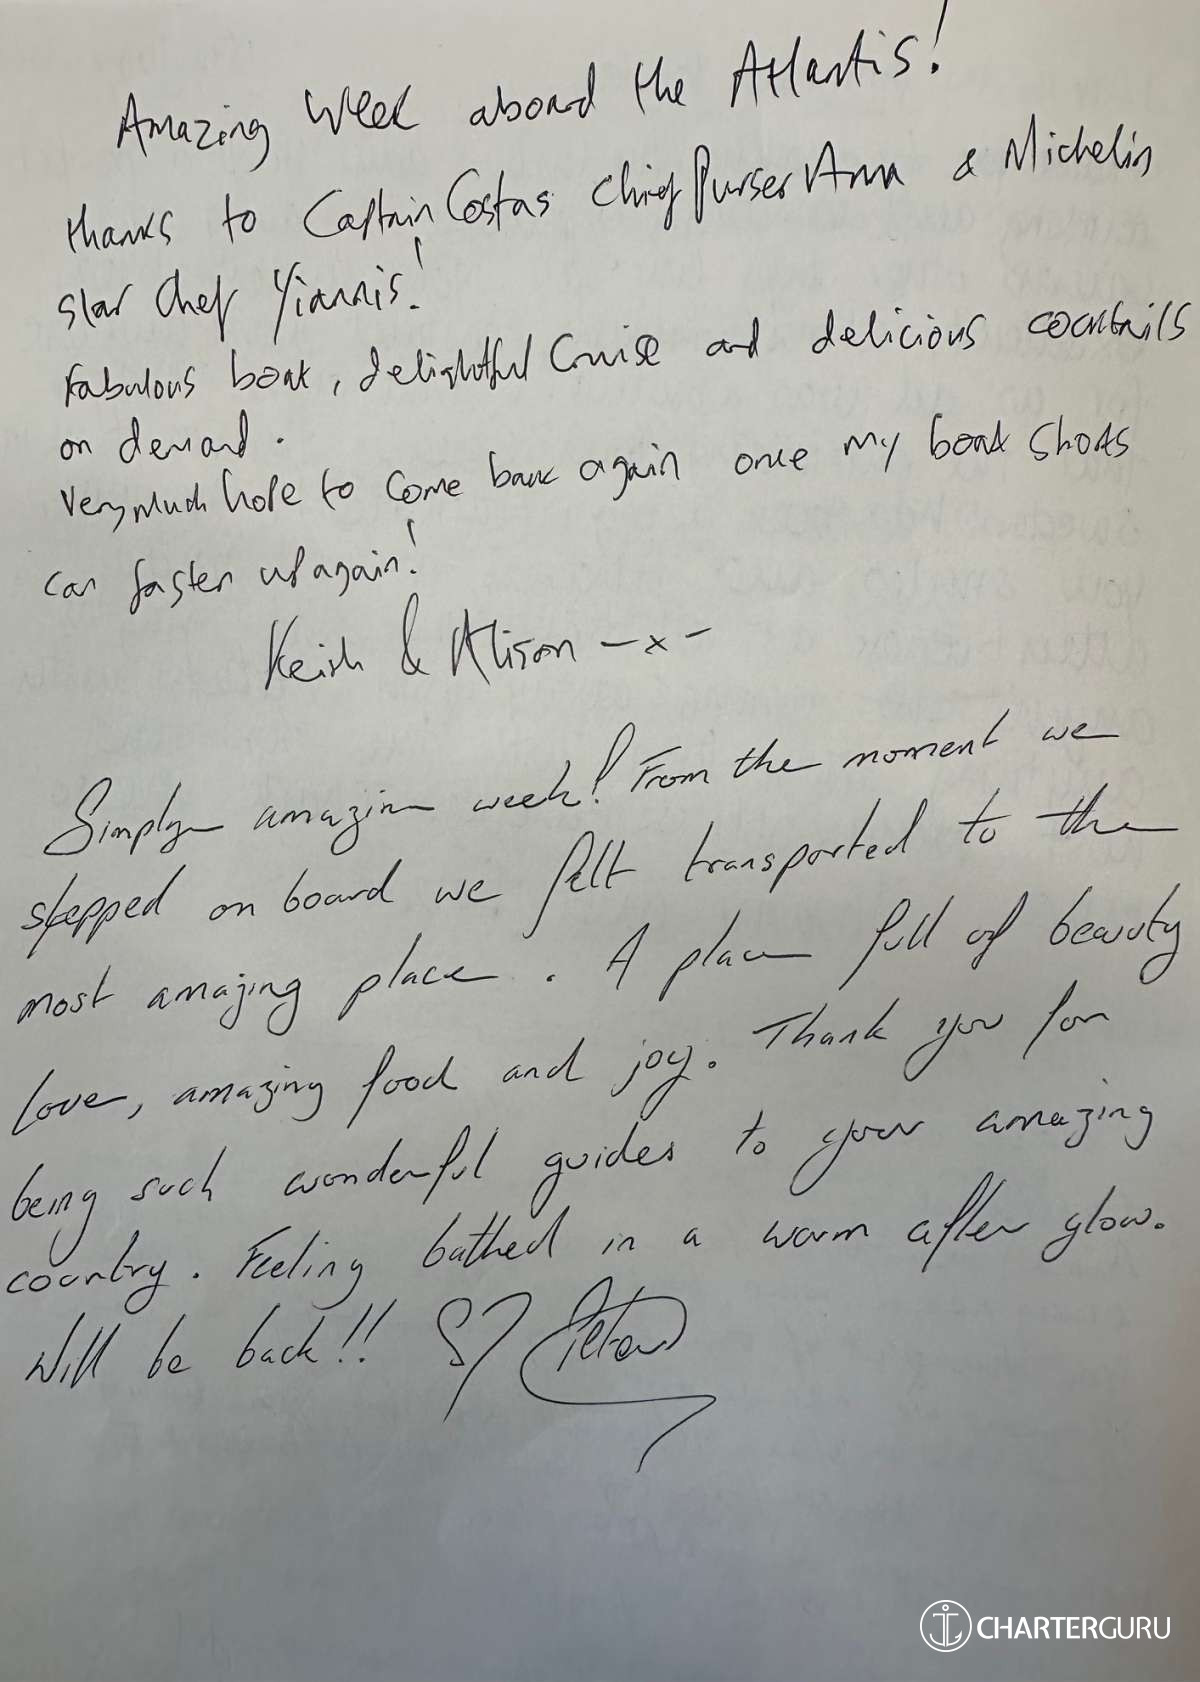 Amazing Week aboard the Atlantis!
thanks to Captain Costas Chief Purser Anna & Michelin
star Chef Yiannis!
Fabulous boat, delightful Cruise and delicious cocktails
on demand.
Very much hope to come back again once my boat shorts
can fasten up again!
Keith & Alison -x-
Simply amazing week! From the moment we
stepped on board we felt transported to the
most amazing place. A place full of beauty
love, amazing food and joy. Thank you for
being such wonderful guides to your amazing
country. Feeling bathed in a warm after glow.
Will be back!!
CHARTERGURU